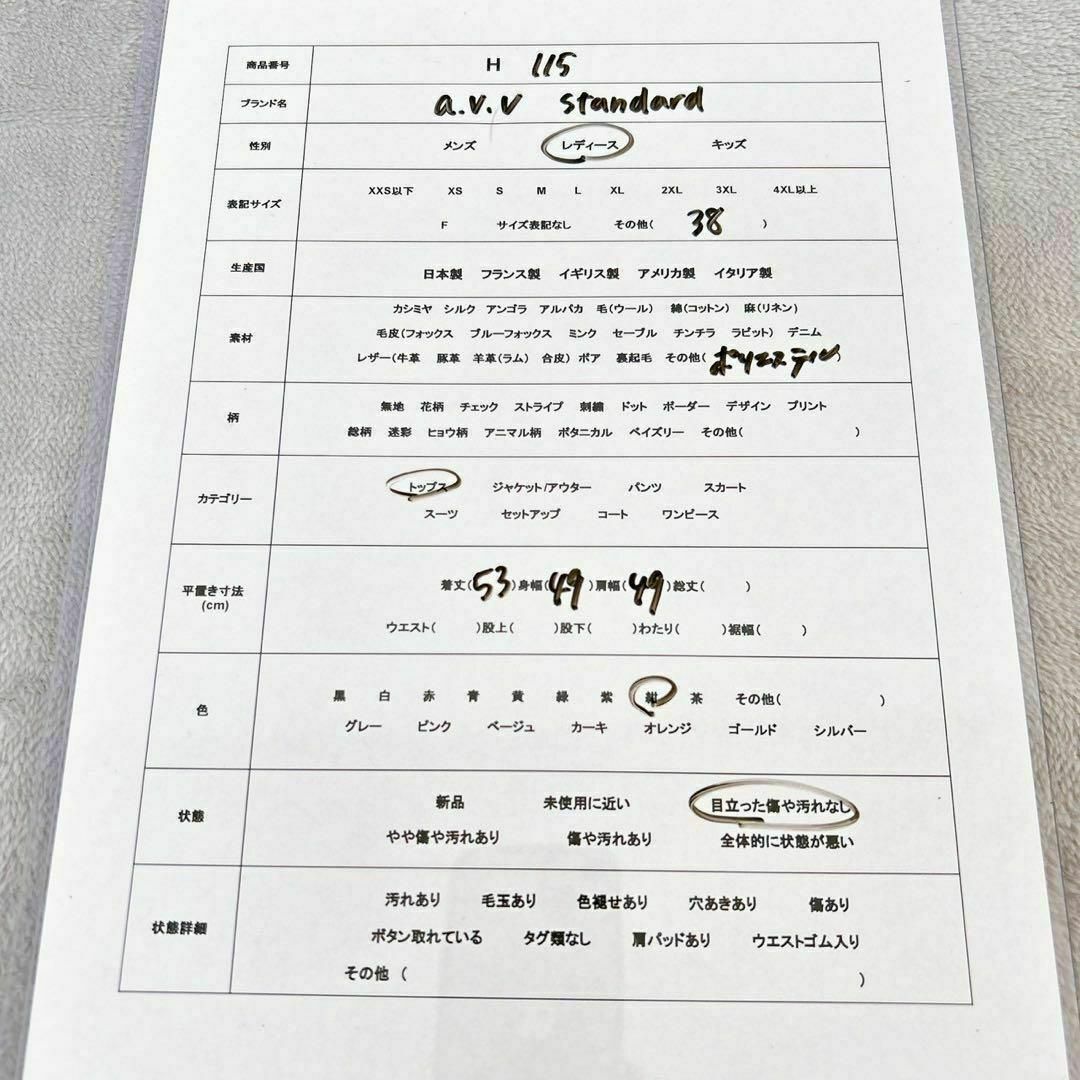 商品番号 H 115
ブランド名 a.v.v standard
性別 メンズ レディース キッズ
表記サイズ
XXS以下 XS S M L XL 2XL 3XL 4XL以上
F サイズ表記なし その他( 38 )
生産国 日本製 フランス製 イギリス製 アメリカ製 イタリア製
素材
カシミヤ シルク アンゴラ アルパカ 毛(ウール) 綿(コットン) 麻(リネン)
毛皮(フォックス ブルーフォックス ミンク セーブル チンチラ ラビット) デニム
レザー(牛革 豚革 羊革(ラム) 合皮) ボア 裏起毛 その他( ポリエステル )
柄
無地 花柄 チェック ストライプ 刺繍 ドット ボーダー デザイン プリント
総柄 迷彩 ヒョウ柄 アニマル柄 ボタニカル ペイズリー その他( )
カテゴリー
トップス ジャケット/アウター パンツ スカート
スーツ セットアップ コート ワンピース
平置き寸法
(cm)
着丈( 53 )身幅( 49 )肩幅( 49 )総丈( )
ウエスト( )股上( )股下( )わたり( )裾幅( )
色
黒 白 赤 青 黄 緑 紫 紺 茶 その他( )
グレー ピンク ベージュ カーキ オレンジ ゴールド シルバー
状態
新品 未使用に近い 目立った傷や汚れなし
やや傷や汚れあり 傷や汚れあり 全体的に状態が悪い
状態詳細
汚れあり 毛玉あり 色褪せあり 穴あきあり 傷あり
ボタン取れている タグ類なし 肩パッドあり ウエストゴム入り
その他 ( )